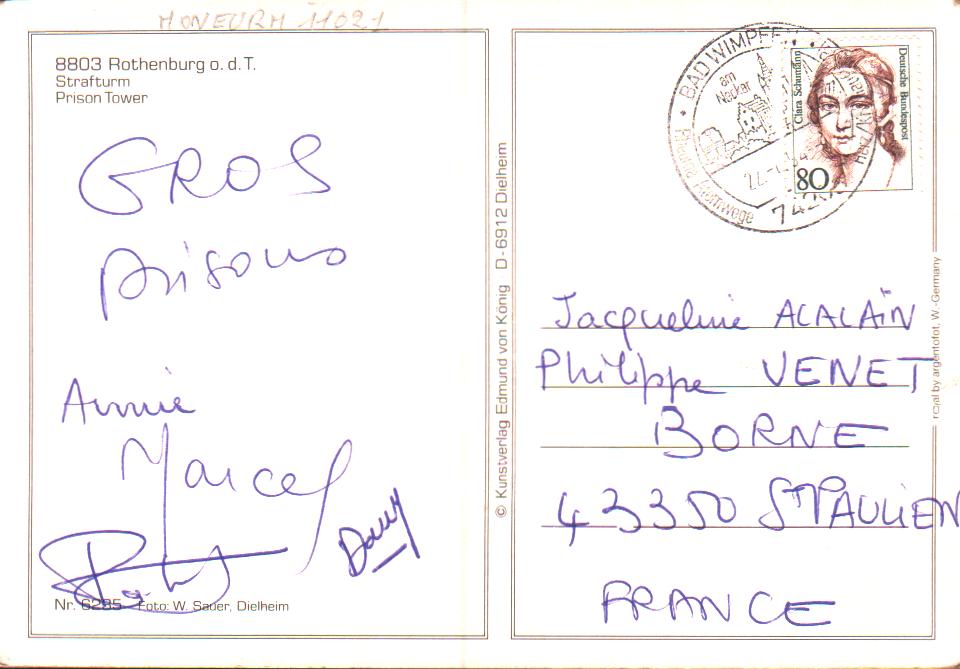 MONEURM 11021
8803 Rothenburg o. d. T.
Strafturm
Prison Tower
GROS
prisous
Annie
Marcel
Dany
Nr. 6285 Foto: W. Sauer, Dielheim
© Kunstverlag Edmund von König D-6912 Dielheim
BAD WIMPFEN
am
Neckar
74206
Clara Schumann
Deutsche Bundespost
80
Jacqueline ALALAÏN
Philippe VENET
BORNE
43350 St PAULIEN
FRANCE
by argentofot, W.-Germany